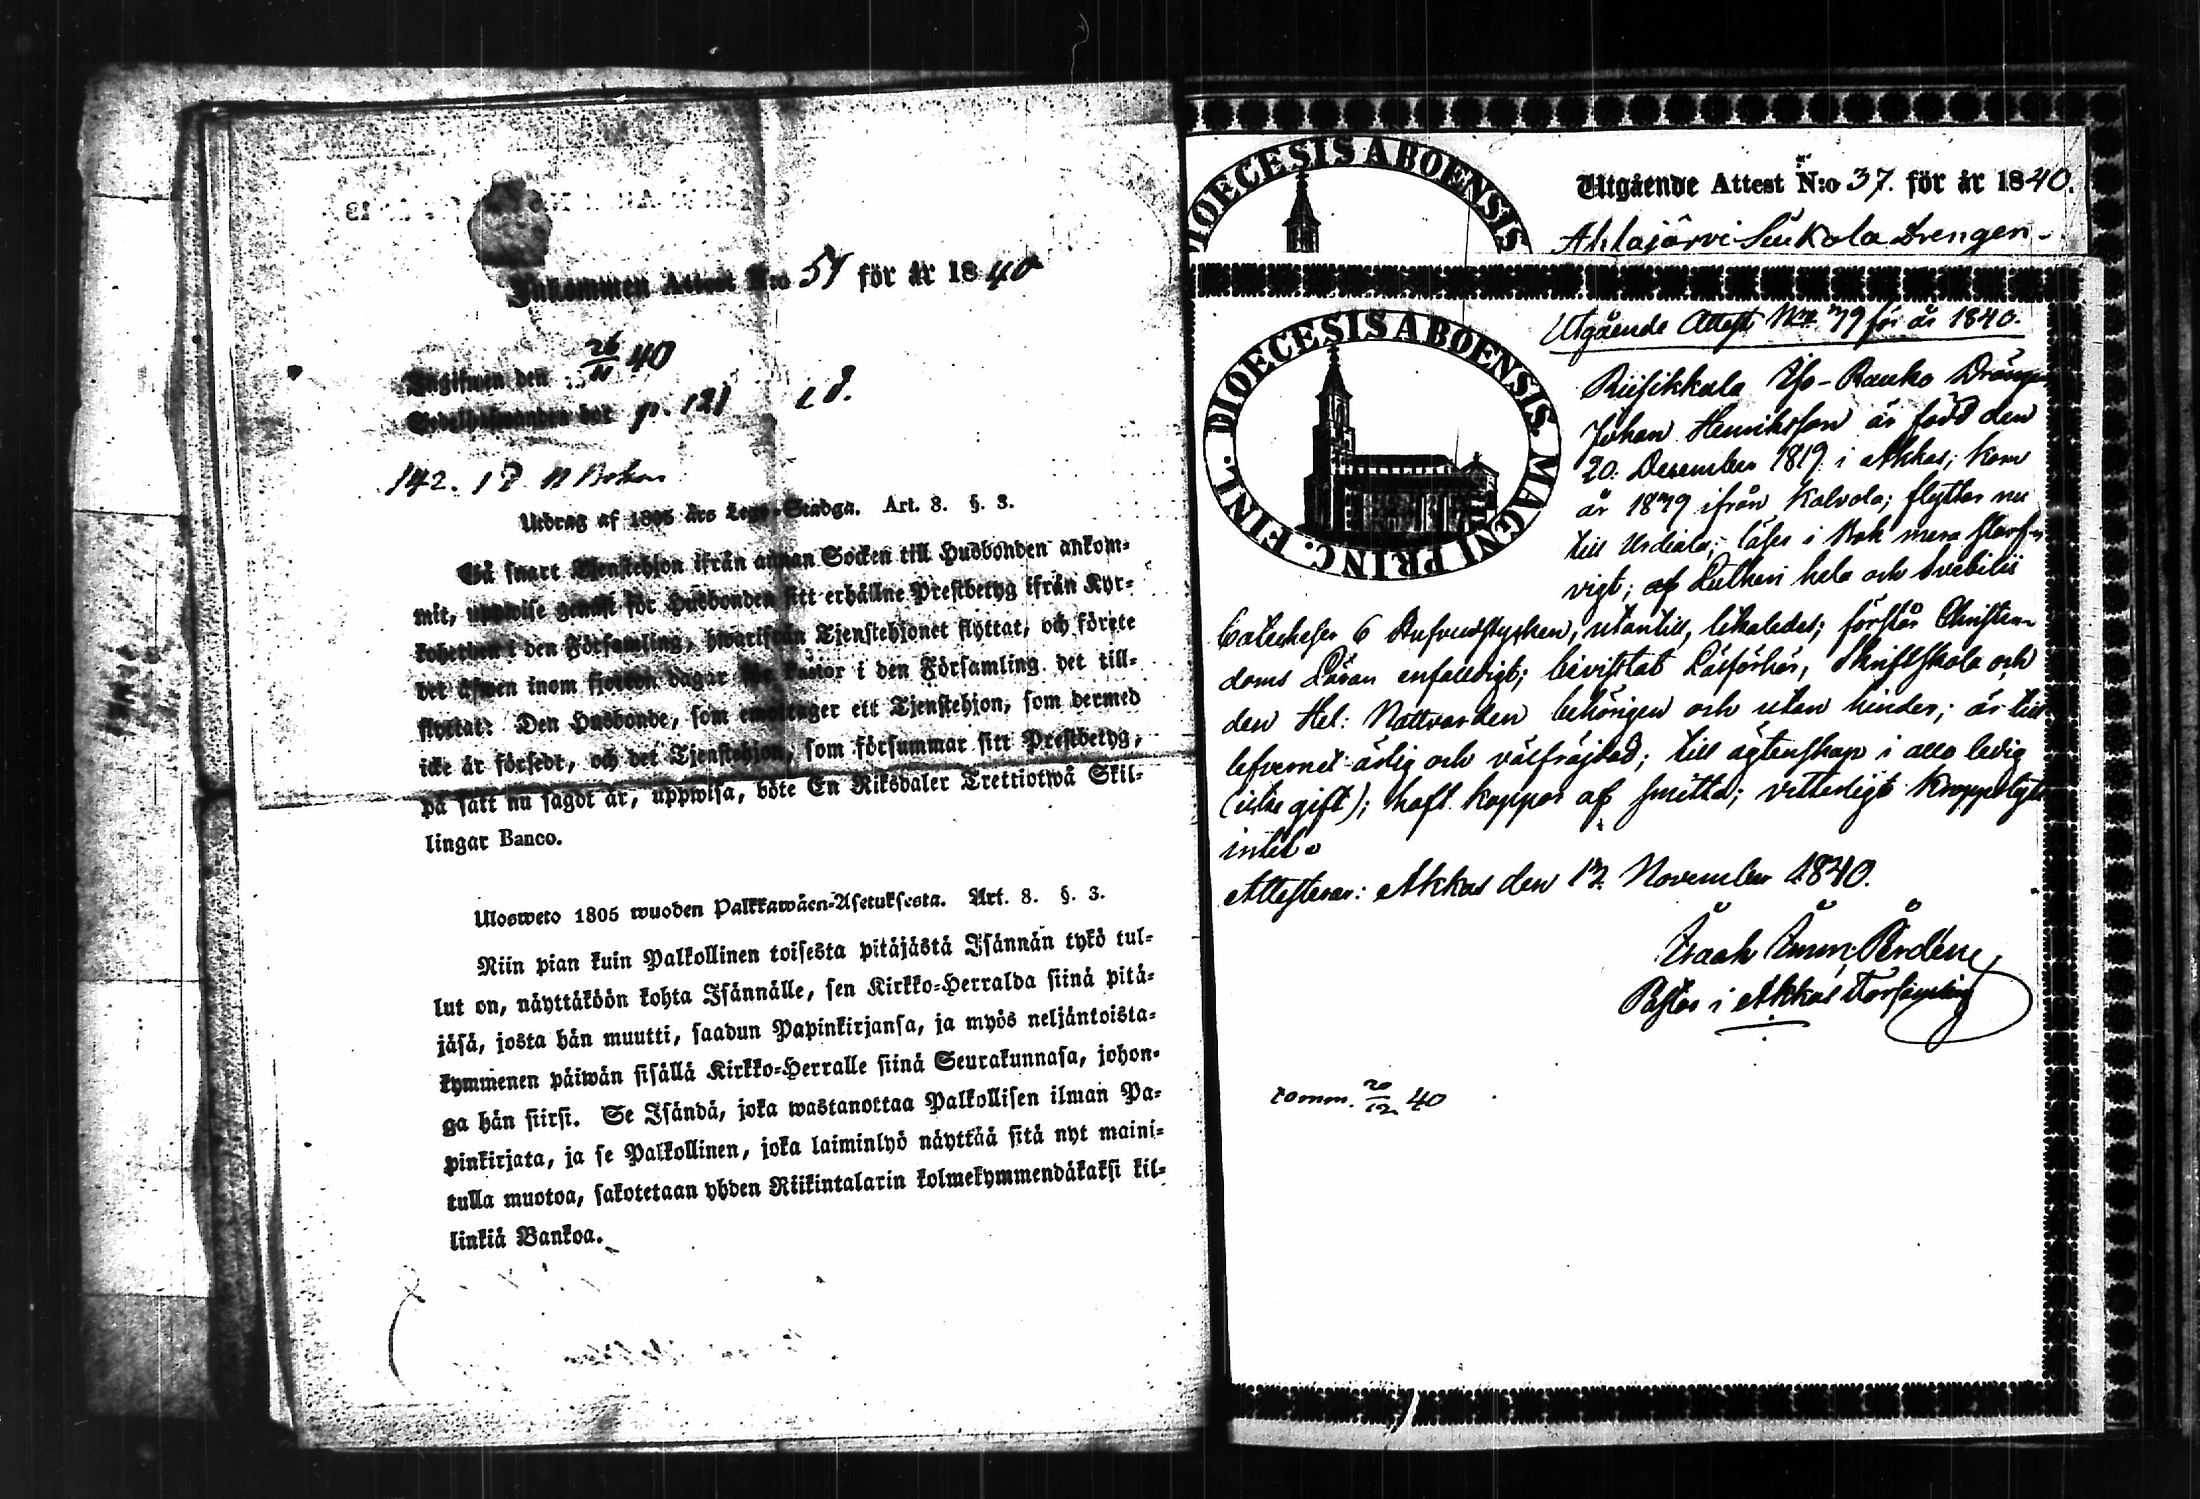 Inkommen Attest N:o 51 för år 1840
Ingifwen den 26/11 40
p. 121 18.
142. 1 D.
Utdrag af 1805 års Lego-Stadga. Art. 8. §. 3.
Så snart Tjenstehjon ifrån annan Socken till Husbonden ankom-
mit, uppwise genast för Husbonden sitt erhållne Prestbetyg ifrån Kyr-
koherden i den Församling, hwarifrån Tjenstehjonet flyttat, och förete
det äfwen inom fjorton dagar för Pastor i den Församling det till-
flyttat: Den Husbonde, som emottager ett Tjenstehjon, som dermed
icke är försedt, och det Tjenstehjon, som försummar sitt Prestbetyg,
på sätt nu sagdt är, uppwisa, böte En Riksdaler Trettiotwå Skil-
lingar Banco.
Ulosweto 1805 wuoden Palkkawäen-Asetuksesta. Art. 8. §. 3.
Niin pian kuin Palkollinen toisesta pitäjästä Isännän tykö tul-
lut on, näyttäköön kohta Isännälle, sen Kirkko-Herralda siinä pitä-
jäsä, josta hän muutti, saadun Papinkirjansa, ja myös neljäntoista-
kymmenen päiwän sisällä Kirkko-Herralle siinä Seurakunnasa, johon-
ga hän siirsi. Se Isändä, joka wastanottaa Palkollisen ilman Pa-
pinkirjata, ja se Palkollinen, joka laiminlyö näyttää sitä nyt maini-
tulla muotoa, sakotetaan yhden Riikintalarin kolmekymmendäkaksi kil-
linkiä Bankoa.
DIOECESIS ABOENSIS
Utgående Attest N:o 37. för år 1840.
Ahlajärvi Siukola Drengen
Utgående Attest N:o 79 för år 1840.
DIOECESIS ABOENSIS. MAGNI PRINC. FINL.
Riisikkala Iso-Rauko Drängen
Johan Henriksson är född den
20. December 1819. i Akkas; kom
år 1839 ifrån Kalvola; flyttar nu
till Urdiala; läser i Bok mera
vigt; af Lutheri hela och Svebilii
Catecheser 6 Hufvudstycken, utantill, likaledes; förstår Christen-
doms Läran enfaldigt; bivistat Läsförhör, Skriftskola och
den Hel: Nattvarden behörigen och utan hinder; är till
lefvernet ärlig och välfräjdad; till ägtenskap i allo ledig
(icke gift); haft koppor af smitta; vitterligt kroppslyte
intet.
Attesterar: Akkas den 12. November 1840.
Isaak Imm: Perdén
Pastor i Akkas Församling
comm. 20/12 40